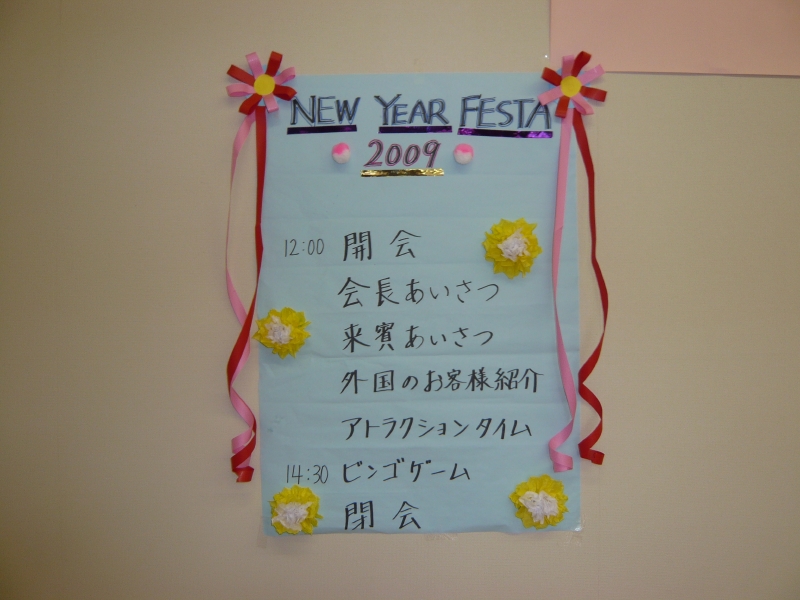 NEW YEAR FESTA
2009
12:00 開会
会長あいさつ
来賓あいさつ
外国のお客様紹介
アトラクションタイム
14:30 ビンゴゲーム
閉会